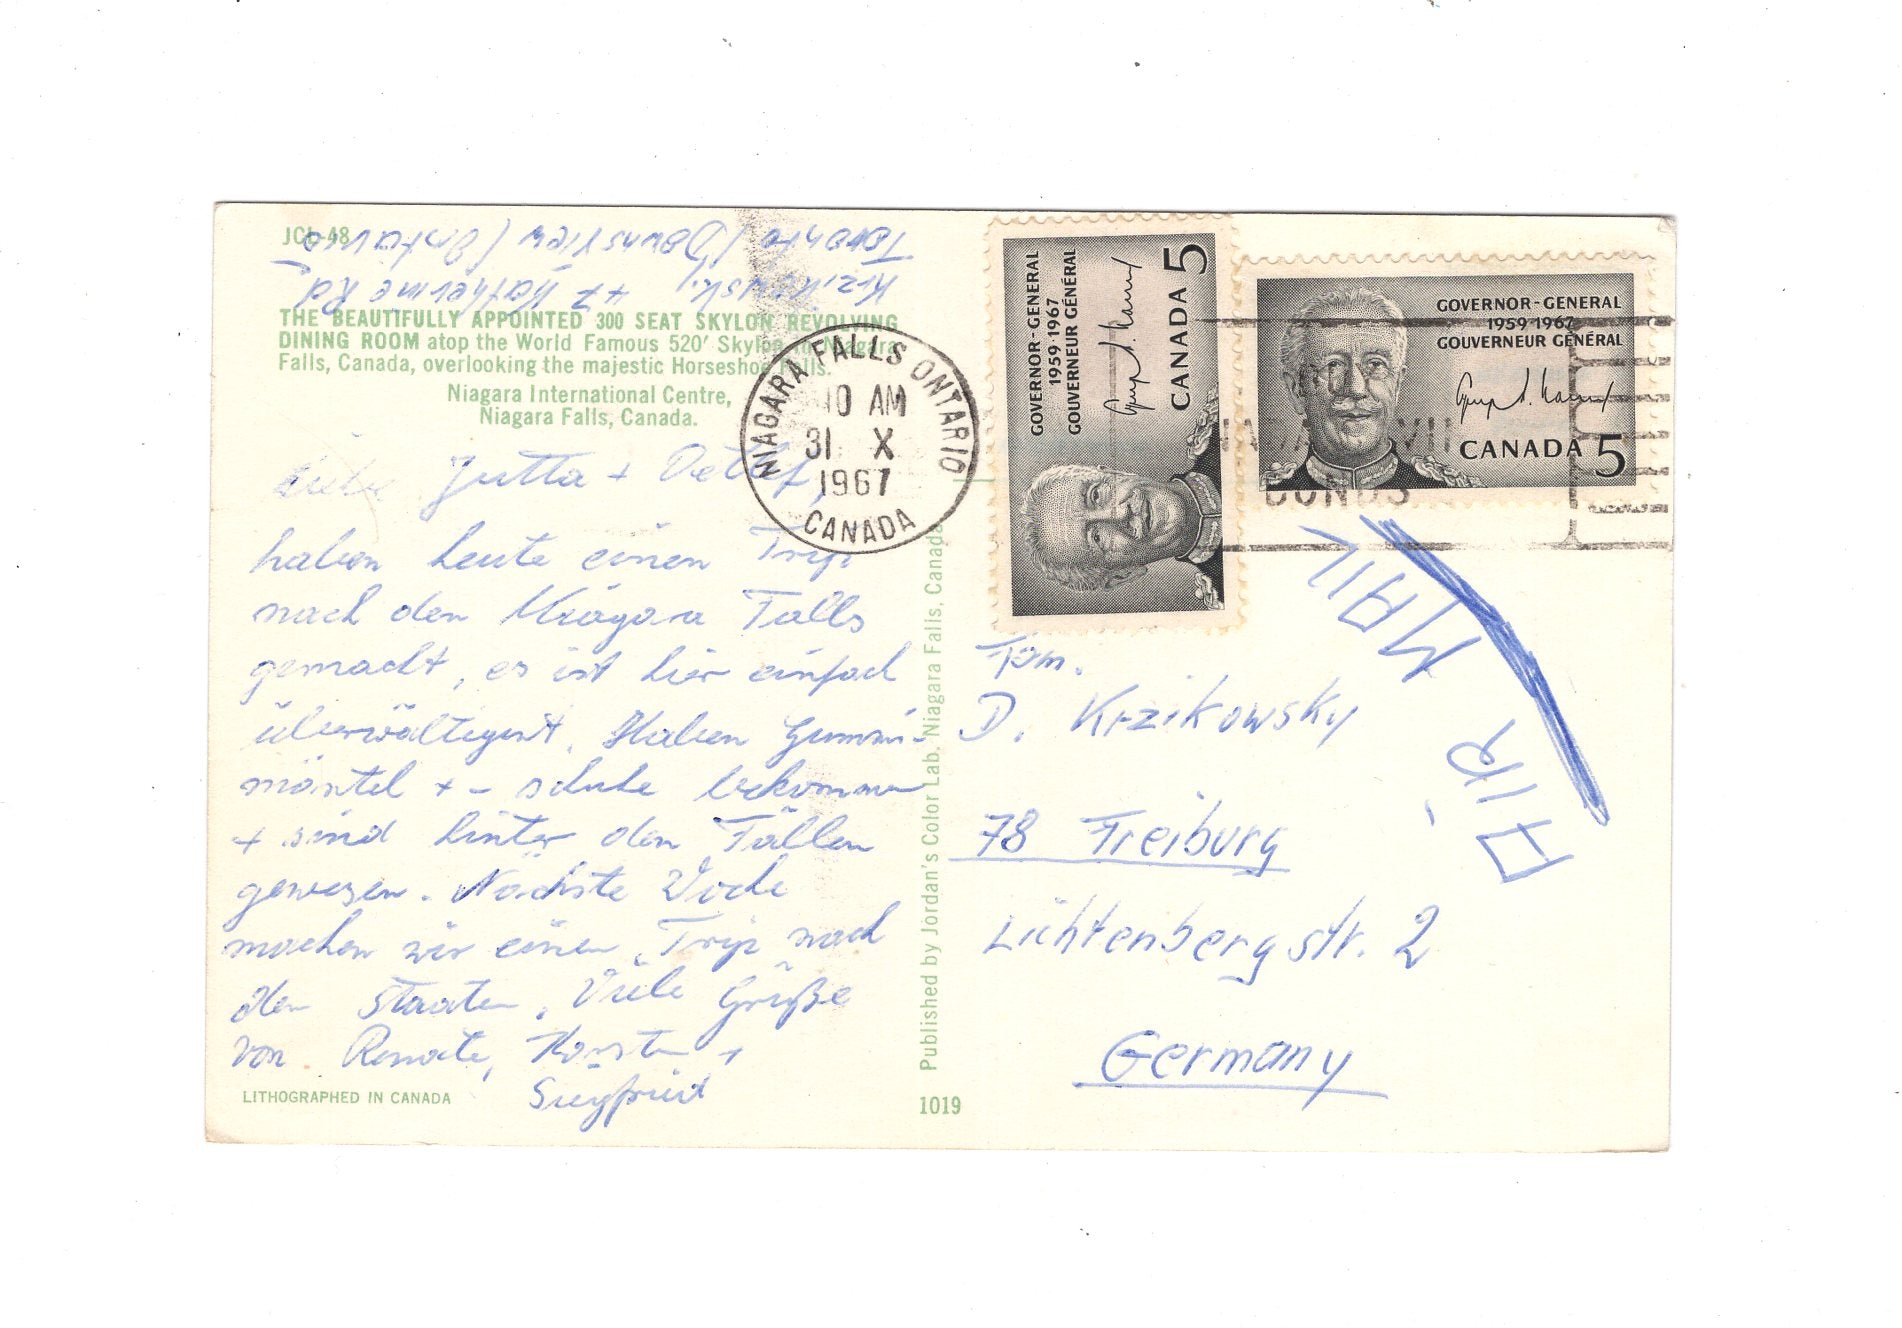 JCL-48
Krzikowski, 47 Katherine Rd
Toronto / Downsview (Ontario
THE BEAUTIFULLY APPOINTED 300 SEAT SKYLON REVOLVING
DINING ROOM atop the World Famous 520' Skylon in Niagara
Falls, Canada, overlooking the majestic Horseshoe Falls.
Niagara International Centre,
Niagara Falls, Canada.
Liebe Jutta + Detlef,
haben heute einen Trip
nach den Niagara Falls
gemacht, es ist hier einfach
überwältigent. Haben Gummi-
mäntel + - schuhe bekommen
+ sind hinter den Fällen
gewesen. Nächste Woche
machen wir einen Trip nach
den Staaten. Viele Grüße
von Renate, Horst +
Siegfried
LITHOGRAPHED IN CANADA
Published by Jordan's Color Lab. Niagara Falls, Canada
1019
NIAGARA FALLS ONTARIO
10 AM
31 X
1967
CANADA
GOVERNOR-GENERAL
1959-1967
GOUVERNEUR GÉNÉRAL
CANADA 5
GOVERNOR-GENERAL
1959-1967
GOUVERNEUR GÉNÉRAL
CANADA 5
BONDS
AIR MAIL
Fam.
D. Krzikowsky
78 Freiburg
Lichtenbergstr. 2
Germany